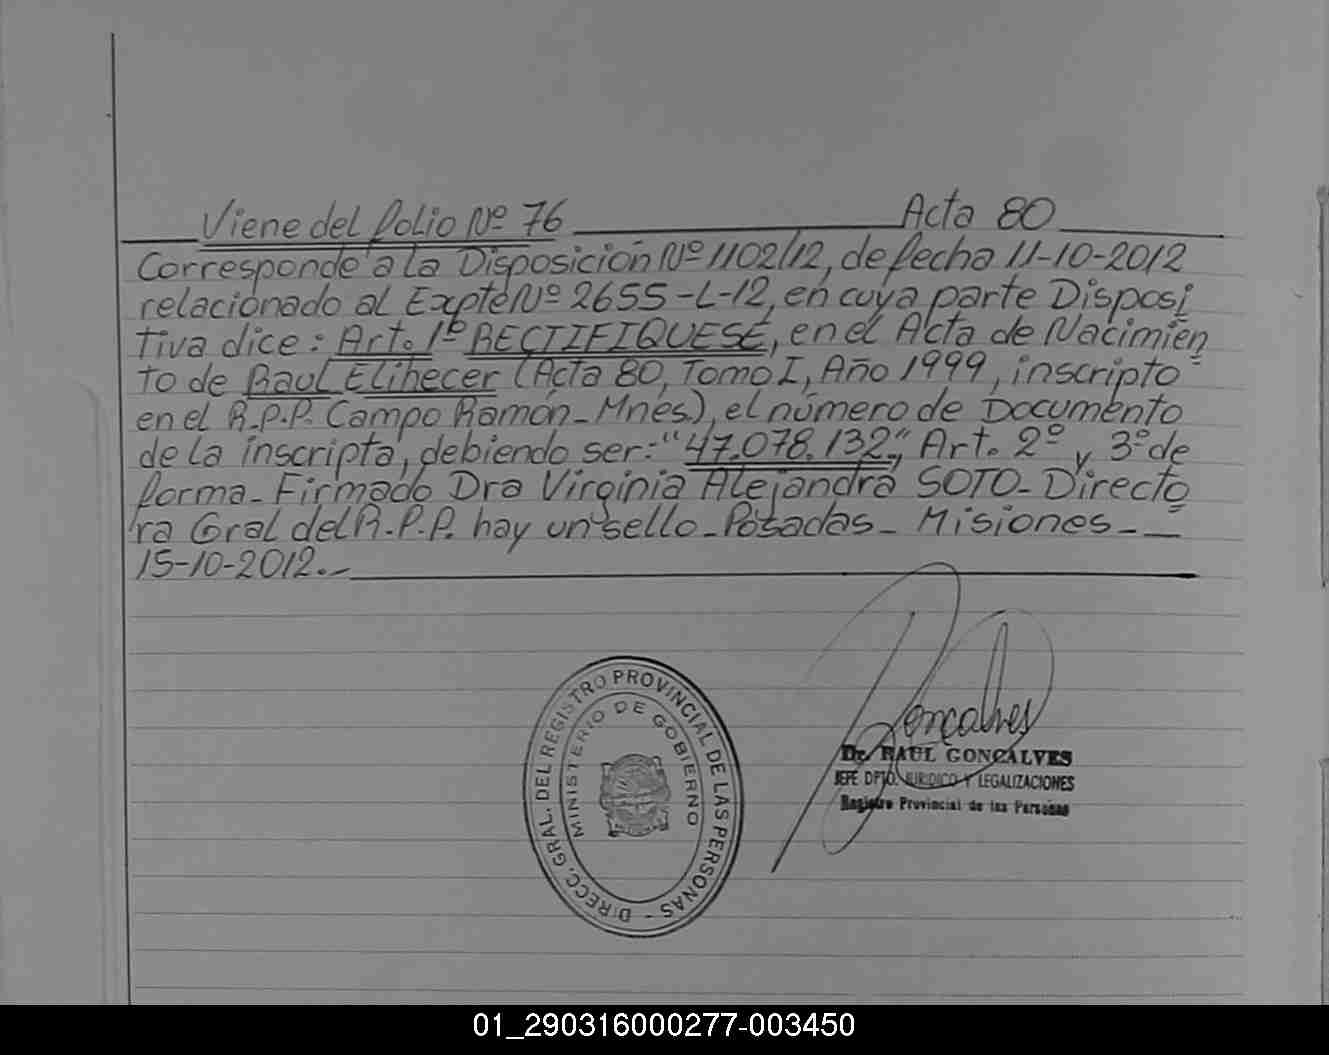 Viene del folio Nº 76 Acta 80
Corresponde a la Disposición Nº 1102/12, de fecha 11-10-2012
relacionado al Expte Nº 2655-L-12, en cuya parte Disposi
tiva dice: Art. 1º RECTIFIQUESE, en el Acta de Nacimien
to de Raul Elihecer (Acta 80, Tomo I, Año 1999, inscripto
en el R.P.P. Campo Ramón - Mnes.), el número de Documento
de la inscripta, debiendo ser: "47.078.132", Art. 2º y 3º de
forma - Firmado Dra Virginia Alejandra SOTO - Directo
ra Gral del R.P.P. hay un sello - Posadas - Misiones -
15-10-2012.-
DIRECC. GRAL. DEL REGISTRO PROVINCIAL DE LAS PERSONAS -
MINISTERIO DE GOBIERNO
Goncalves
Dr. RAUL GONCALVES
JEFE DPTO. JURIDICO Y LEGALIZACIONES
Registro Provincial de las Personas
01_290316000277-003450